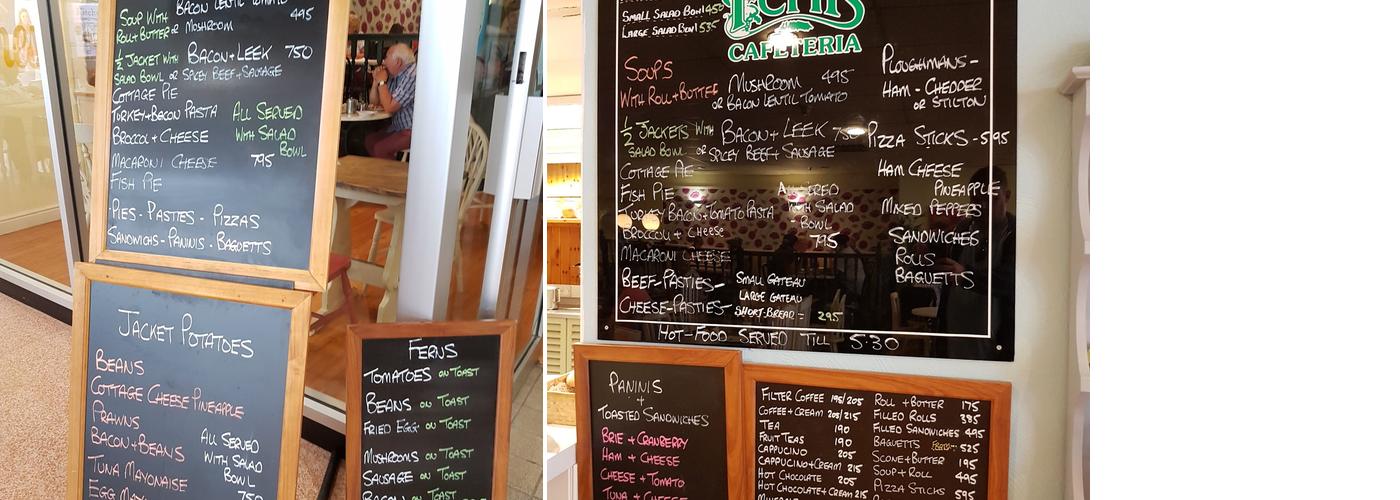 BACON LENTIL TOMATO
SOUP WITH 495
ROLL+BUTTER OR MUSHROOM
½ JACKET WITH BACON+LEEK 750
SALAD BOWL OR SPICEY BEEF+SAUSAGE
COTTAGE PIE
TURKEY+BACON PASTA ALL SERVED
BROCCOLI+CHEESE WITH SALAD
BOWL
MACARONI CHEESE 795
FISH PIE
PIES - PASTIES - PIZZAS
SANDWICHS - PANINIS - BAGUETTS
JACKET POTATOES
BEANS
COTTAGE CHEESE PINEAPPLE
PRAWNS
BACON+BEANS ALL SERVED
TUNA MAYONAISE WITH SALAD
EGG MAYO BOWL
750
FERNS
TOMATOES ON TOAST
BEANS ON TOAST
FRIED EGG ON TOAST
MUSHROOMS ON TOAST
SAUSAGE ON TOAST
BACON ON TOAST
SMALL SALAD BOWL 450
LARGE SALAD BOWL 535
CAFETERIA
SOUPS MUSHROOM 495
WITH ROLL+BUTTER OR BACON LENTIL TOMATO
½ JACKETS WITH BACON+LEEK 750
SALAD BOWL OR SPICEY BEEF+SAUSAGE
COTTAGE PIE
FISH PIE
TURKEY BACON+TOMATO PASTA WITH SALAD
BROCCOLI+CHEESE BOWL
795
MACARONI CHEESE
BEEF-PASTIES- SMALL GATEAU
LARGE GATEAU
CHEESE-PASTIES- SHORT-BREAD = 295
PLOUGHMANS-
HAM-CHEDDER
OR STILTON
PIZZA STICKS-595
HAM CHEESE
PINEAPPLE
MIXED PEPPERS
SANDWICHES
ROLLS
BAGUETTS
HOT-FOOD SERVED TILL 5:30
PANINIS
+
TOASTED SANDWICHES
BRIE+CRANBERRY
HAM+CHEESE
CHEESE+TOMATO
TUNA+CHEESE
FILTER COFFEE 195/205
COFFEE+CREAM 205/215
TEA 190
FRUIT TEAS 190
CAPPUCINO 205
CAPPUCINO+CREAM 215
HOT CHOCOLATE 205
HOT CHOCOLATE+CREAM 215
ROLL+BUTTER 175
FILLED ROLLS 385
FILLED SANDWICHES 495
BAGUETTS 525
SCONE+BUTTER 195
SOUP+ROLL 495
PIZZA STICKS 595